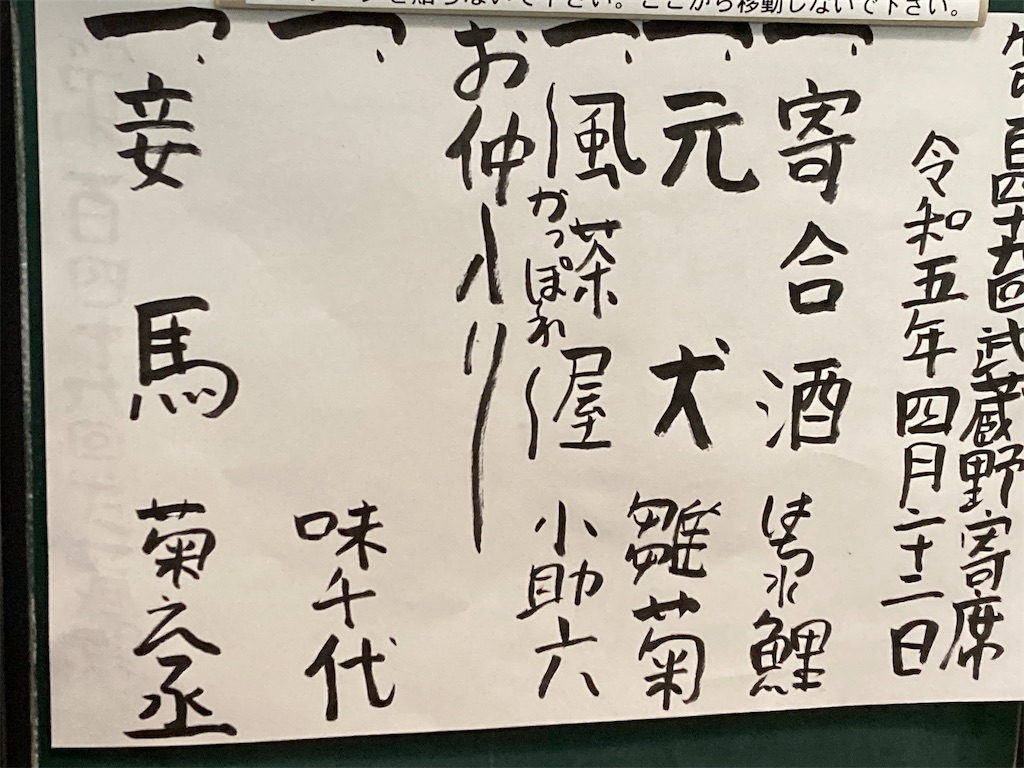 ープを貼らないで下さい。ここから移動しないで下さい。
百四十九回 武蔵野寄席
令和五年四月二十二日
一、寄合酒 はち水鯉
一、元犬 雛菊
一、風茶屋 小助六
かっぽれ
お仲入り
一、 味千代
一、妾馬 菊之丞